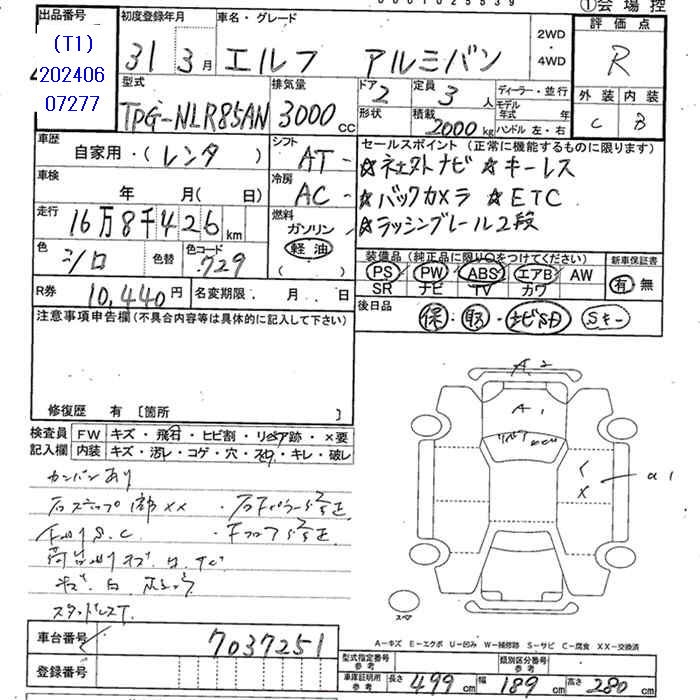 出品番号
(T1)
202406
07277
初度登録年月
31年3月
車名・グレード
エルフ アルミバン
2WD
・
4WD
①会場控
評価点
R
外装 内装
C B
型式
TPG-NLR85AN
排気量
3000 CC
ドア 2
形状
定員 3人
積載 2000kg
ディーラー・並行
モデル年式 年
ハンドル 左・右
車歴
自家用・(レンタ )
シフト
AT-
車検
年 月( 日)
冷房
AC-
走行
16万8千426km
燃料
ガソリン
軽油
( )
色 シロ 色替 色コード 729
R券 10,440円 名変期限 . 月 . 日
セールスポイント (正常に機能するものに限ります)
☆ネエクトナビ ☆キーレス
☆バックカメラ ☆ETC
☆ラッシングレール2段
装備品 (純正品に限り○をつけてください)
PS PW ABS エアB AW
SR ナビ TV カワ
新車保証書
有 無
後日品
保・取・ナビSD Sキー
注意事項申告欄(不具合内容等は具体的に記入して下さい)
修復歴 有 [箇所 ]
検査員記入欄
FW キズ・飛石・ヒビ割・リペア跡・×要
内装 キズ・汚レ・コゲ・穴・スレ・キレ・破レ
カンバンあり
スタッドレスT.
A2
A1
a1
スペア
車台番号 7037251
登録番号
A-キズ E-エクボ U-凹み W-補修跡 S-サビ C-腐食 XX-交換済
型式指定番号 参考
類別区分番号 参考
車庫証明用 参考 長さ 499cm 幅 189cm 高さ 280cm